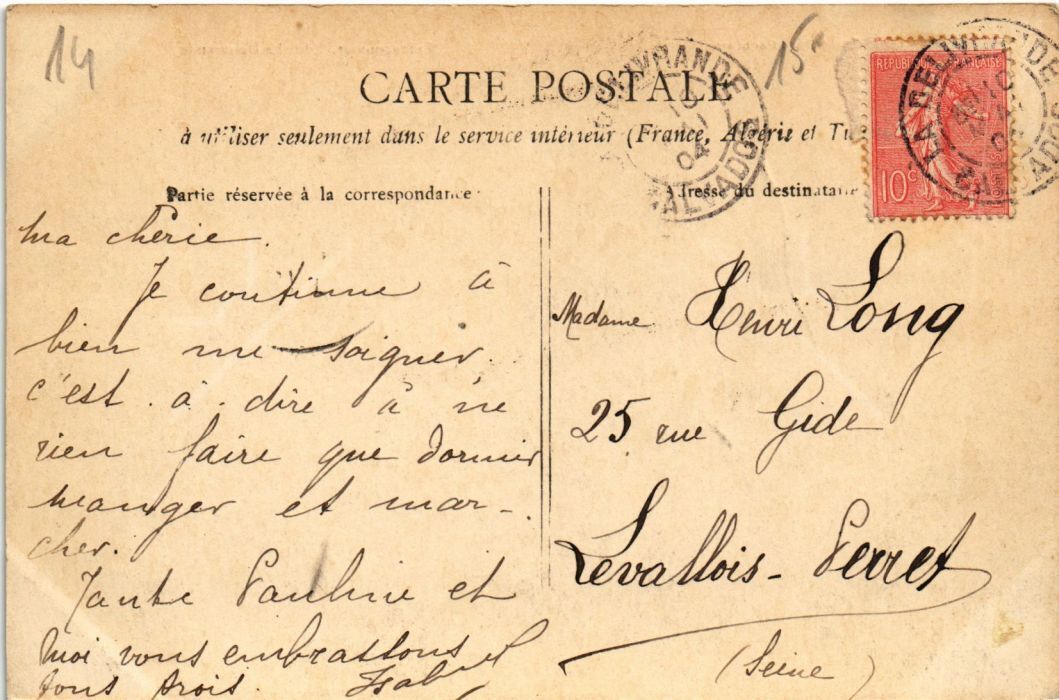 14
15c
CARTE POSTALE
à utiliser seulement dans le service intérieur (France, Algérie et Tu
Partie réservée à la correspondance
Adresse du destinataire
LA DELIVRANDE
04
CALVADOS
REPUBLIQUE FRANÇAISE
10c
LA DELIVRANDE
CALVADOS
ma chérie.
Je continue à
bien me soigner.
c'est. à. dire à ne
rien faire que dormir
manger et mar-
cher.
Tante Pauline et
moi vous embrassons
tous trois. Isabel
Madame Henri Long
25 rue Gide
Levallois-Perret
(Seine)